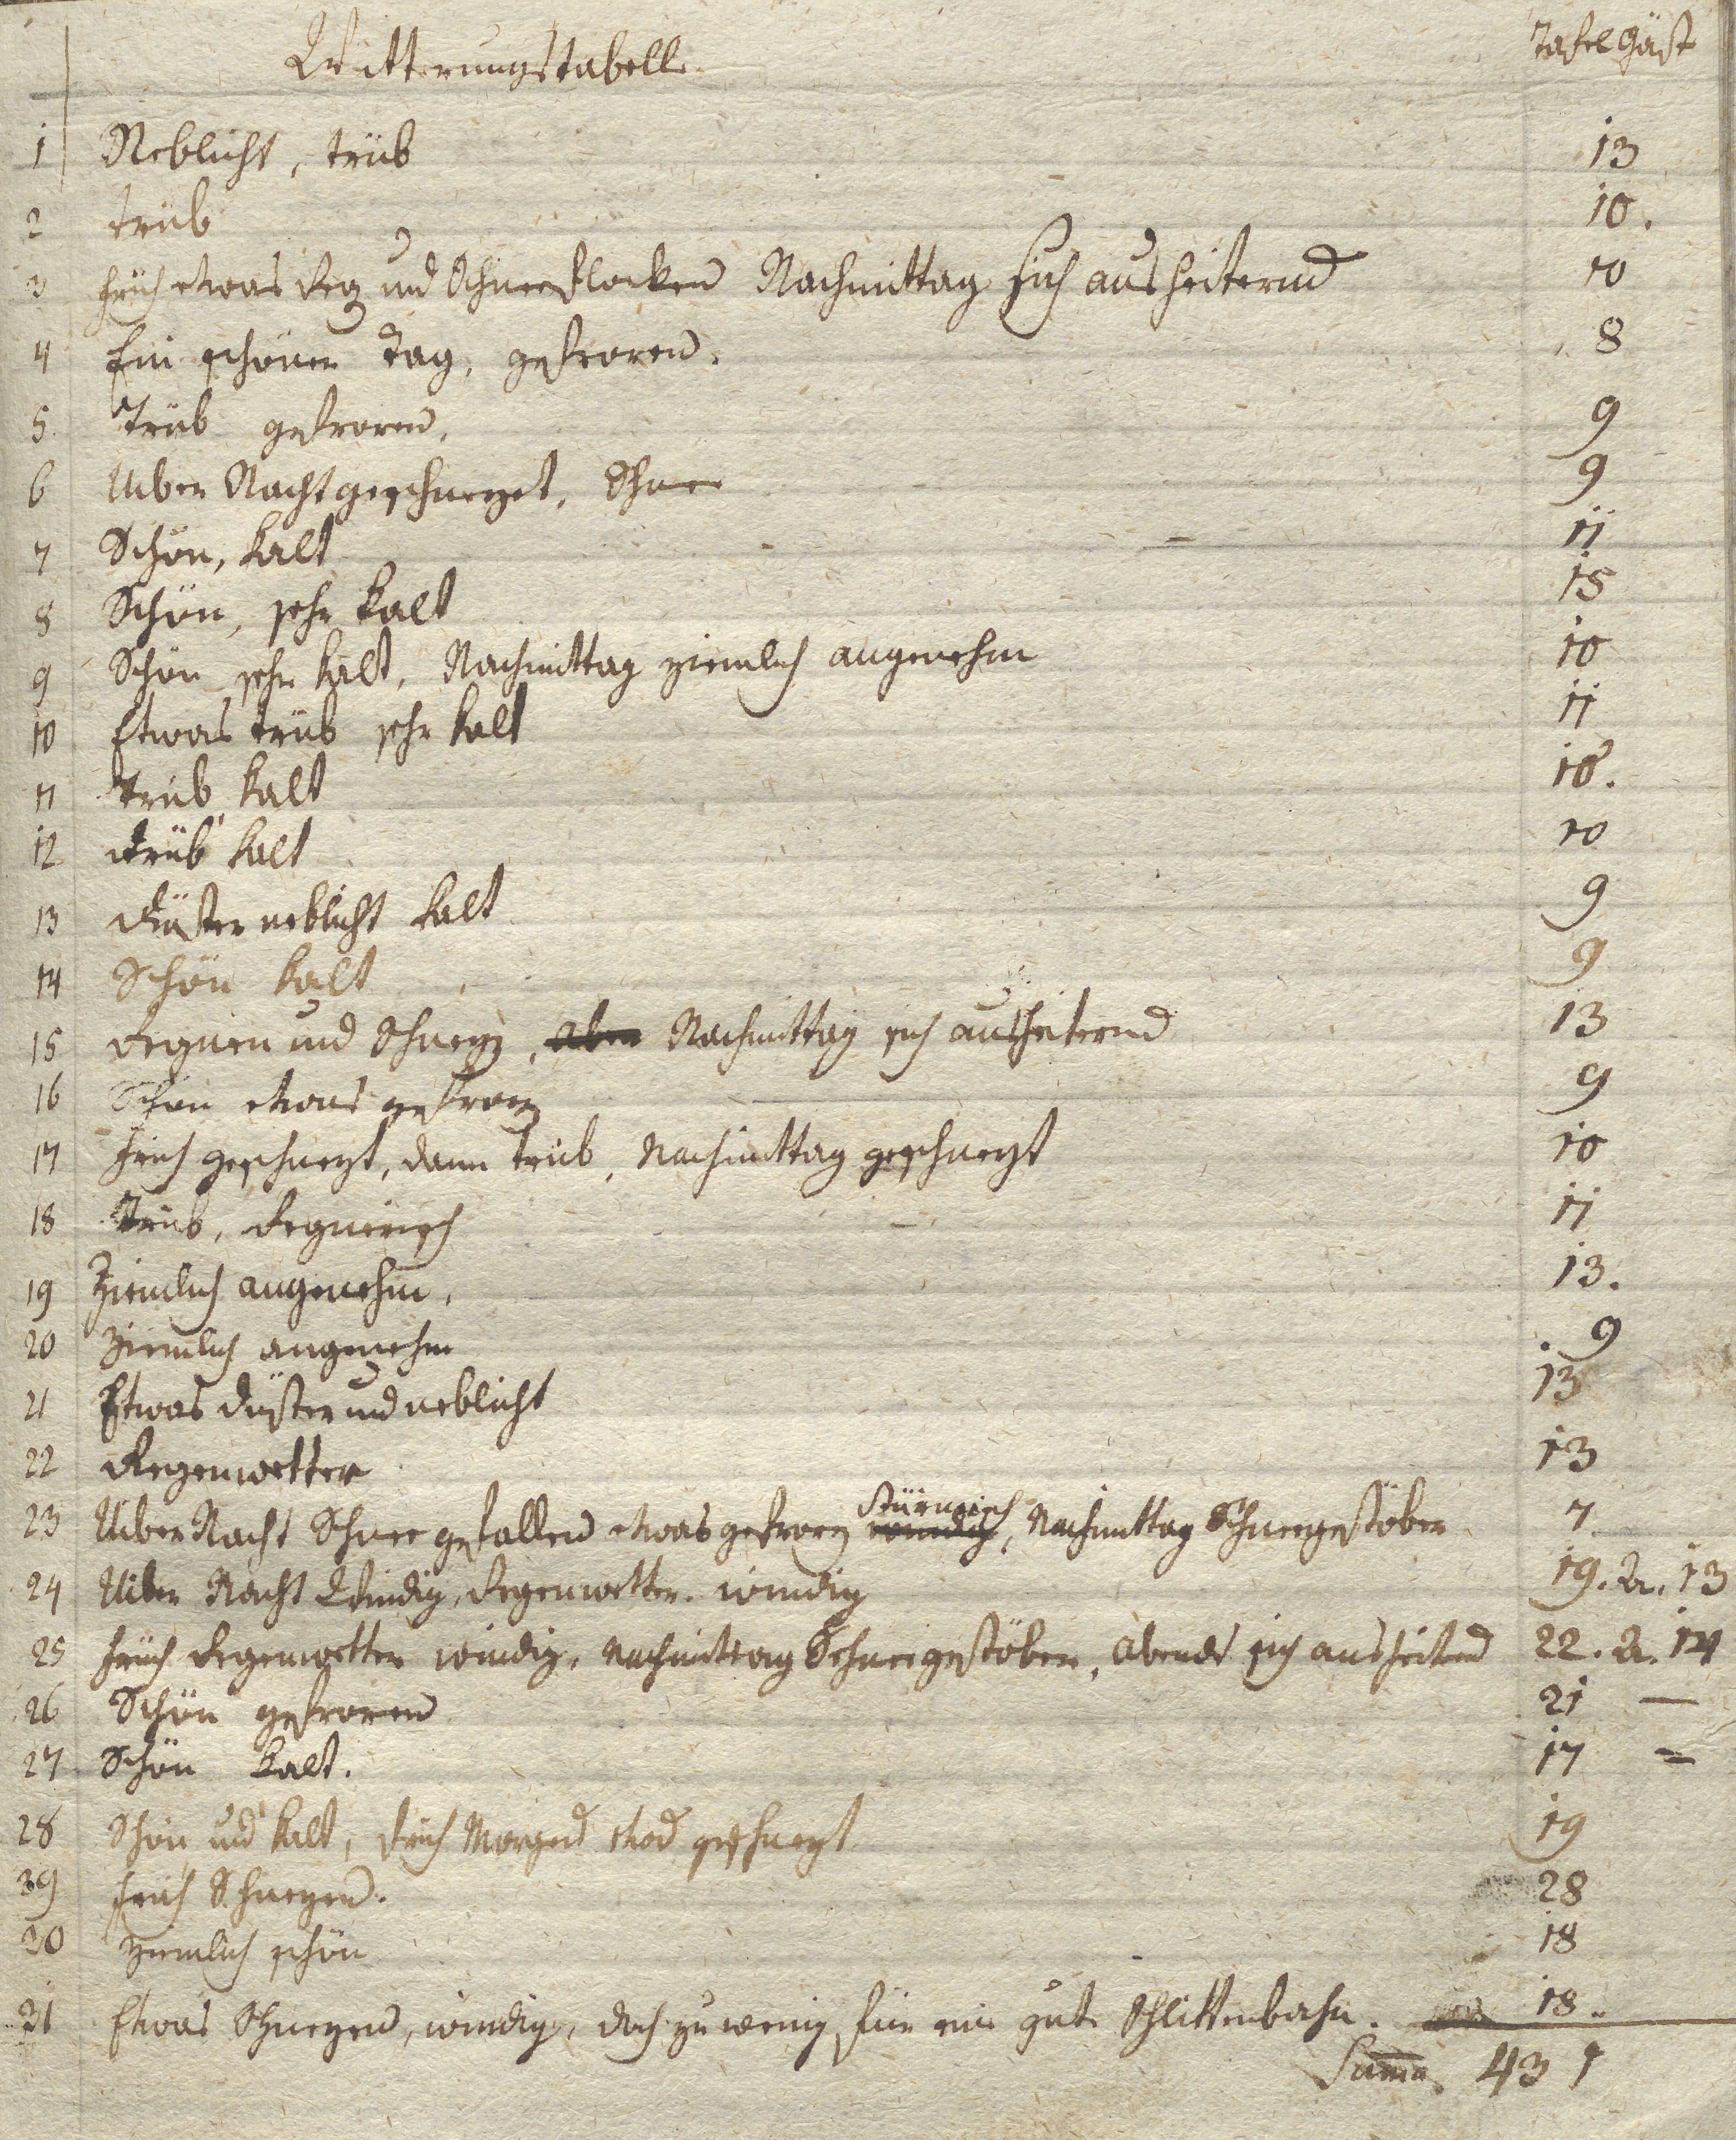 Witterungstabelle Tafel Gäste
1 Neblicht, trüb 13
2 trüb 10.
3 früh etwas Reg und Schneeflocken Nachmittag sich ausheiternd 10
4 Ein schöner Tag, gefroren. 8
5 Trüb gefroren. 9
6 Uiber Nacht geschneyet, Schnee 9
7 Schön, kalt 11
8 Schön, sehr kalt 15
9 Schön sehr kalt, Nachmittag ziemlich angenehm 10
10 Etwas trüb sehr kalt 11
11 Trüb kalt 10.
12 Trüb kalt 10
13 Düster neblicht kalt 9
14 Schön kalt 9
15 Regnen und Schney, aber Nachmittag sich ausheiternd 13
16 Schön etwas gefroren 9
17 früh geschneyt, dann trüb, Nachmittag geschneyt 10
18 Trüb, Regnerisch 11
19 Ziemlich angenehm. 13.
20 Ziemlich angenehm 9
21 Etwas düster und neblicht 13
22 Regenwetter 13
stürmisch
23 Uiber Nacht Schnee gefallen etwas gefroren windig, Nachmittag Schneegestöber 7
24 Uiber Nacht Windig, Regenwetter. windig 19. A. 13
25 früh Regenwetter windig, Nachmittag Schneegestöber, abends sich ausheiternd 22. A. 14
26 Schön gefroren 21 —
27 Schön kalt. 17 =
28 Schön und kalt, früh Morgens etwas geschneyt 19
29 früh Schneyen. 28
30 ziemlich schön 18
31 Etwas Schneyen, windig, doch zu wenig für eine gute Schlittenbahn. 18.
Summa. 431